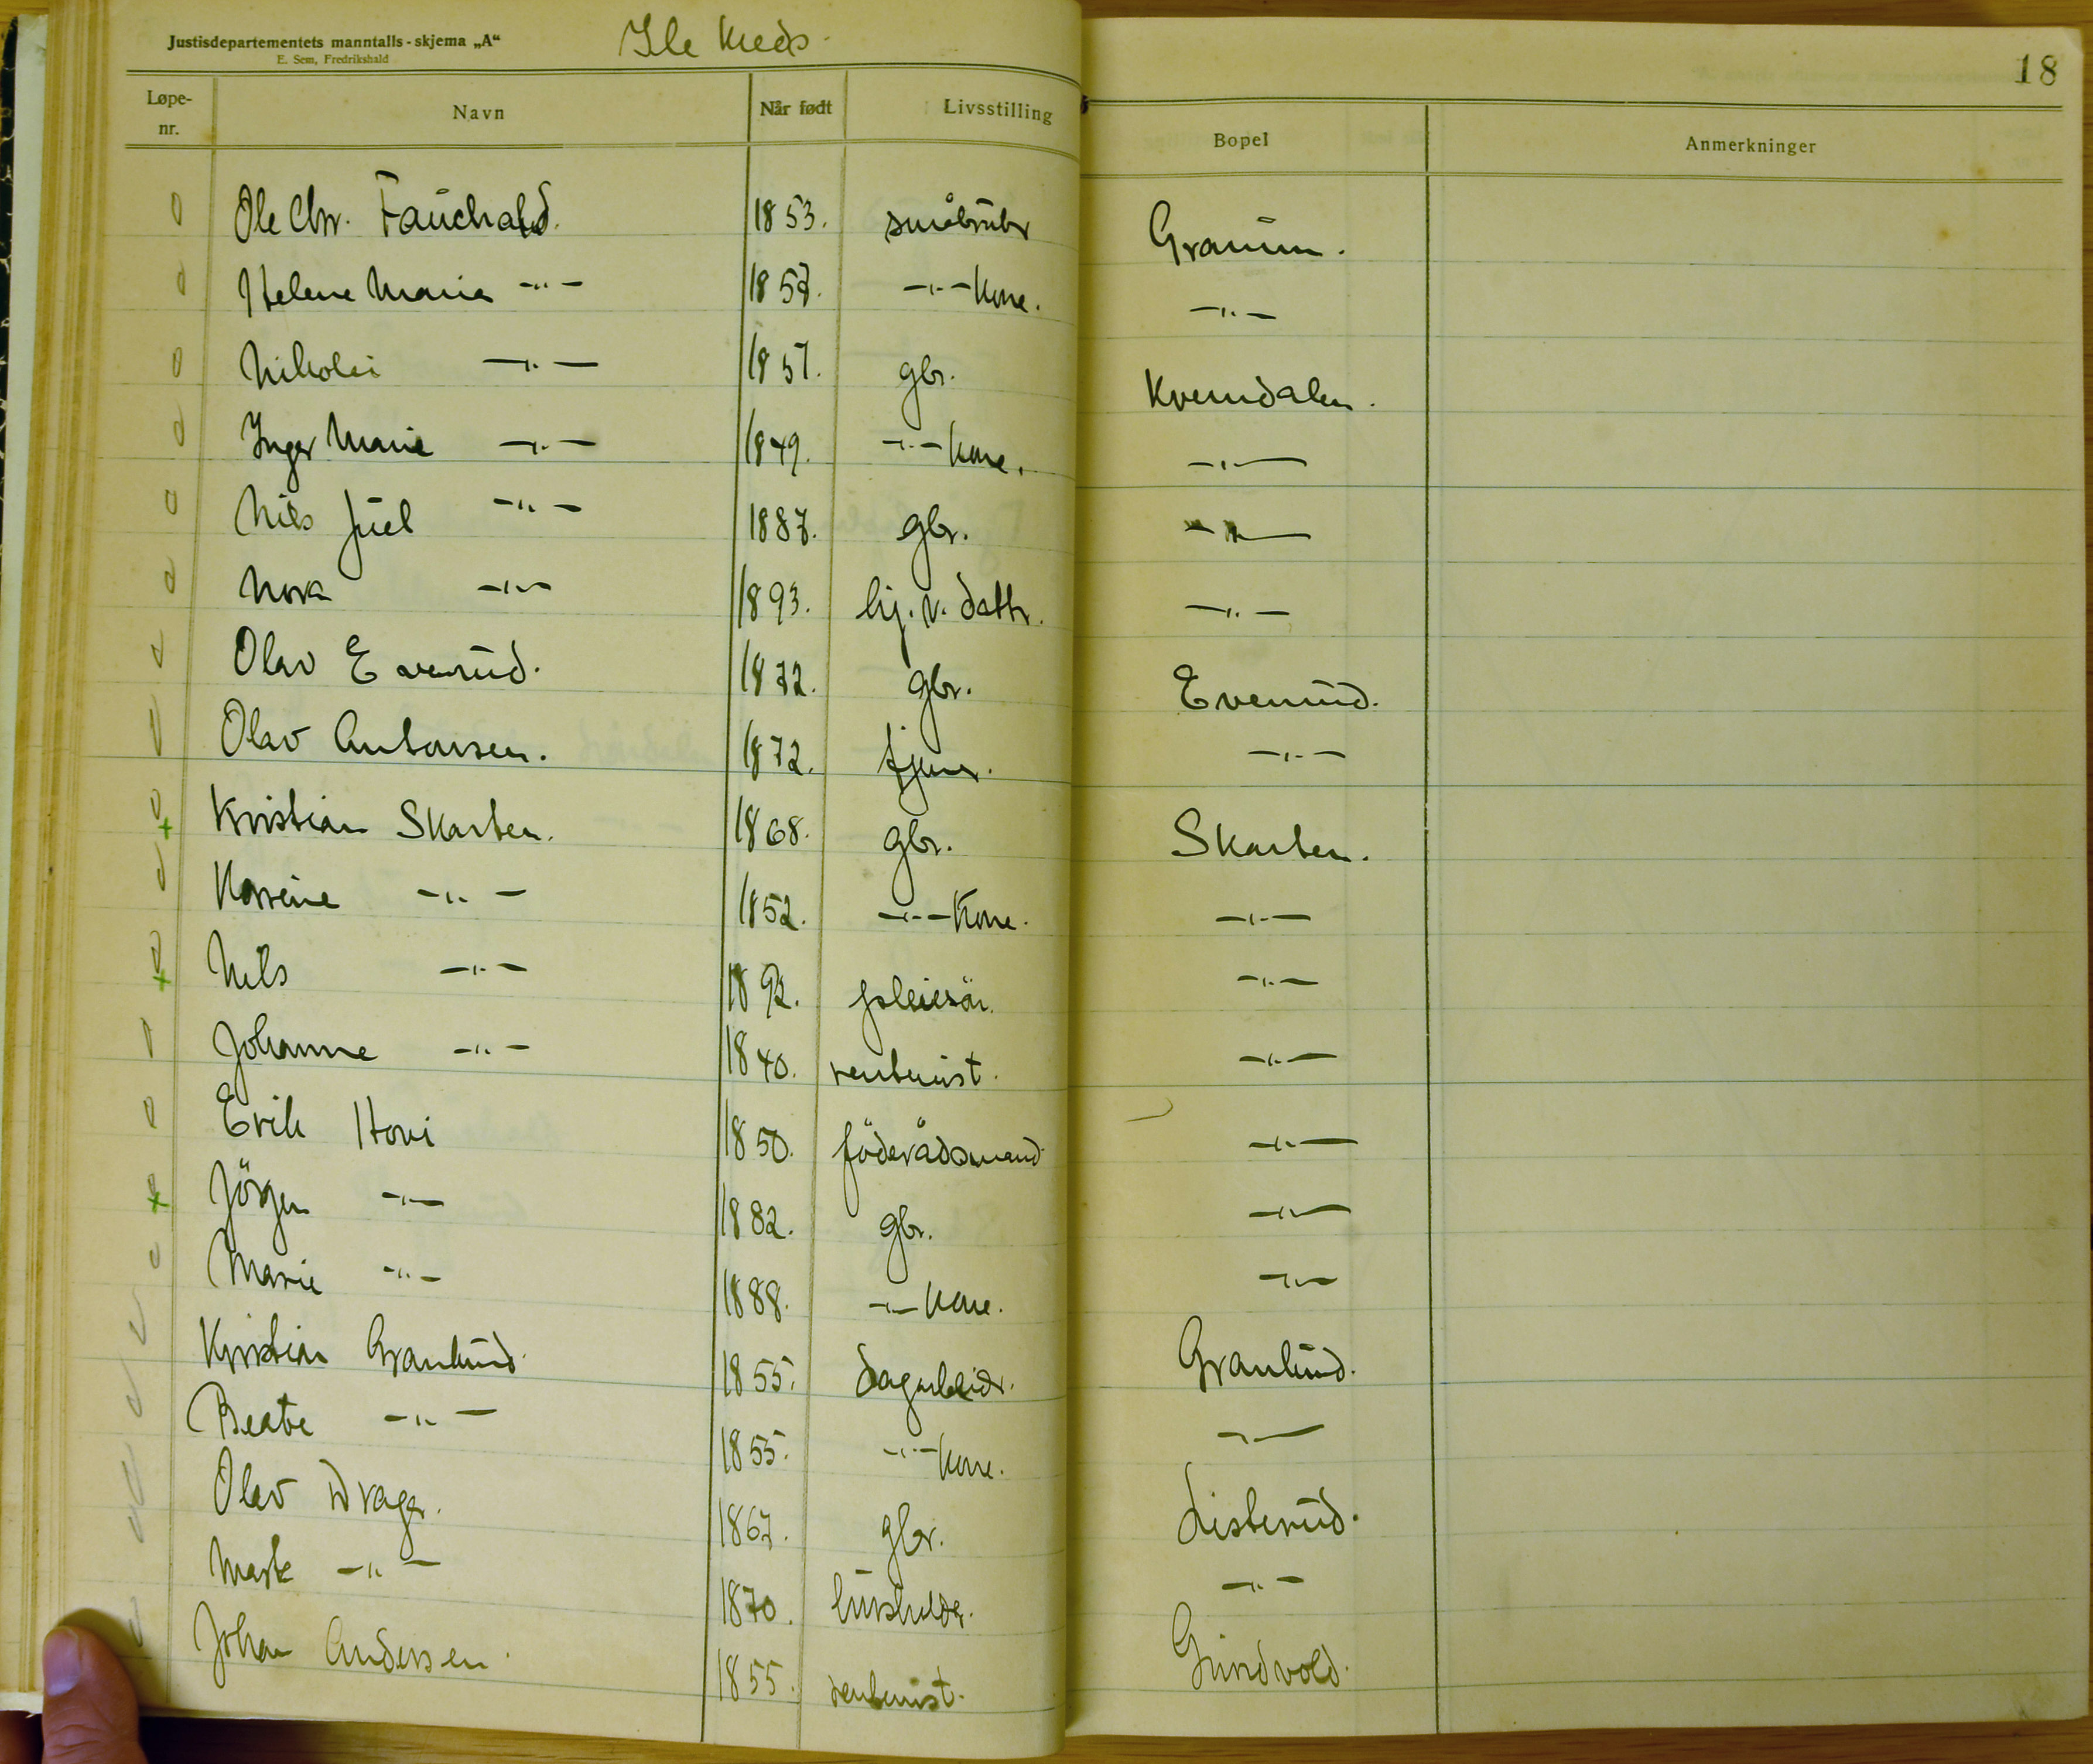 Justisdepartementets manntalls-skjema „A“
E. Sem, Fredrikshald
Ile Kreds.
18
Løpe-nr. Navn Når født Livsstilling Bopel Anmerkninger
Ole Chr. Fauchald. 1853. småbruker Granum.
Helene Marie —"— 1857. —"— Kone. —"—
Nikolai —"— 1851. gbr. Kverndalen.
Inger Marie —"— 1849. —"— Kone. —"—
Nils Juel —"— 1887. gbr. —"—
Nora —"— 1893. hj. v. datter. —"—
Olav Evenrud. 1872. gbr. Evenrud.
Olav Antonsen. 1872. tjener. —"—
Kristian Skarten. 1868. gbr. Skarten.
Karine —"— 1852. —"— Kone. —"—
Nils —"— 1892. pleiesön. —"—
Johanne —"— 1840. rentenist. —"—
Erik Hovi 1850. föderådsmand —"—
Jörgen —"— 1882. gbr. —"—
Marie —"— 1888. —"— Kone. —"—
Kristian Granlund. 1855. dagarbeider. Granlund.
Beate —"— 1855. —"— Kone. —"—
Olav Drager. 1867. gbr. Listerud.
Marte —"— 1870. husholder. —"—
Johan Andersen. 1855. rentenist. Grindvold.